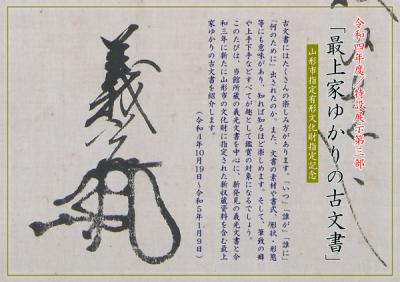 令和四年度 特設展示第三部
「最上家ゆかりの古文書」
山形市指定有形文化財指定記念
古文書にはたくさんの楽しみ方があります。「いつ」「誰が」「誰に」
「何のために」出されたのか、また、文書の素材や書式、形状・形態
等にも意味があり、知れば知るほど楽しめます。そして、筆致の癖
や上手下手などすべてが趣として鑑賞の対象になるでしょう。
このたびは、当館所蔵の義光文書を中心に、新発見の義光文書と令
和三年に新たに山形市の文化財に指定された新収蔵資料を含む最上
家ゆかりの古文書を紹介します。
(令和4年10月19日～令和5年1月9日)
義光